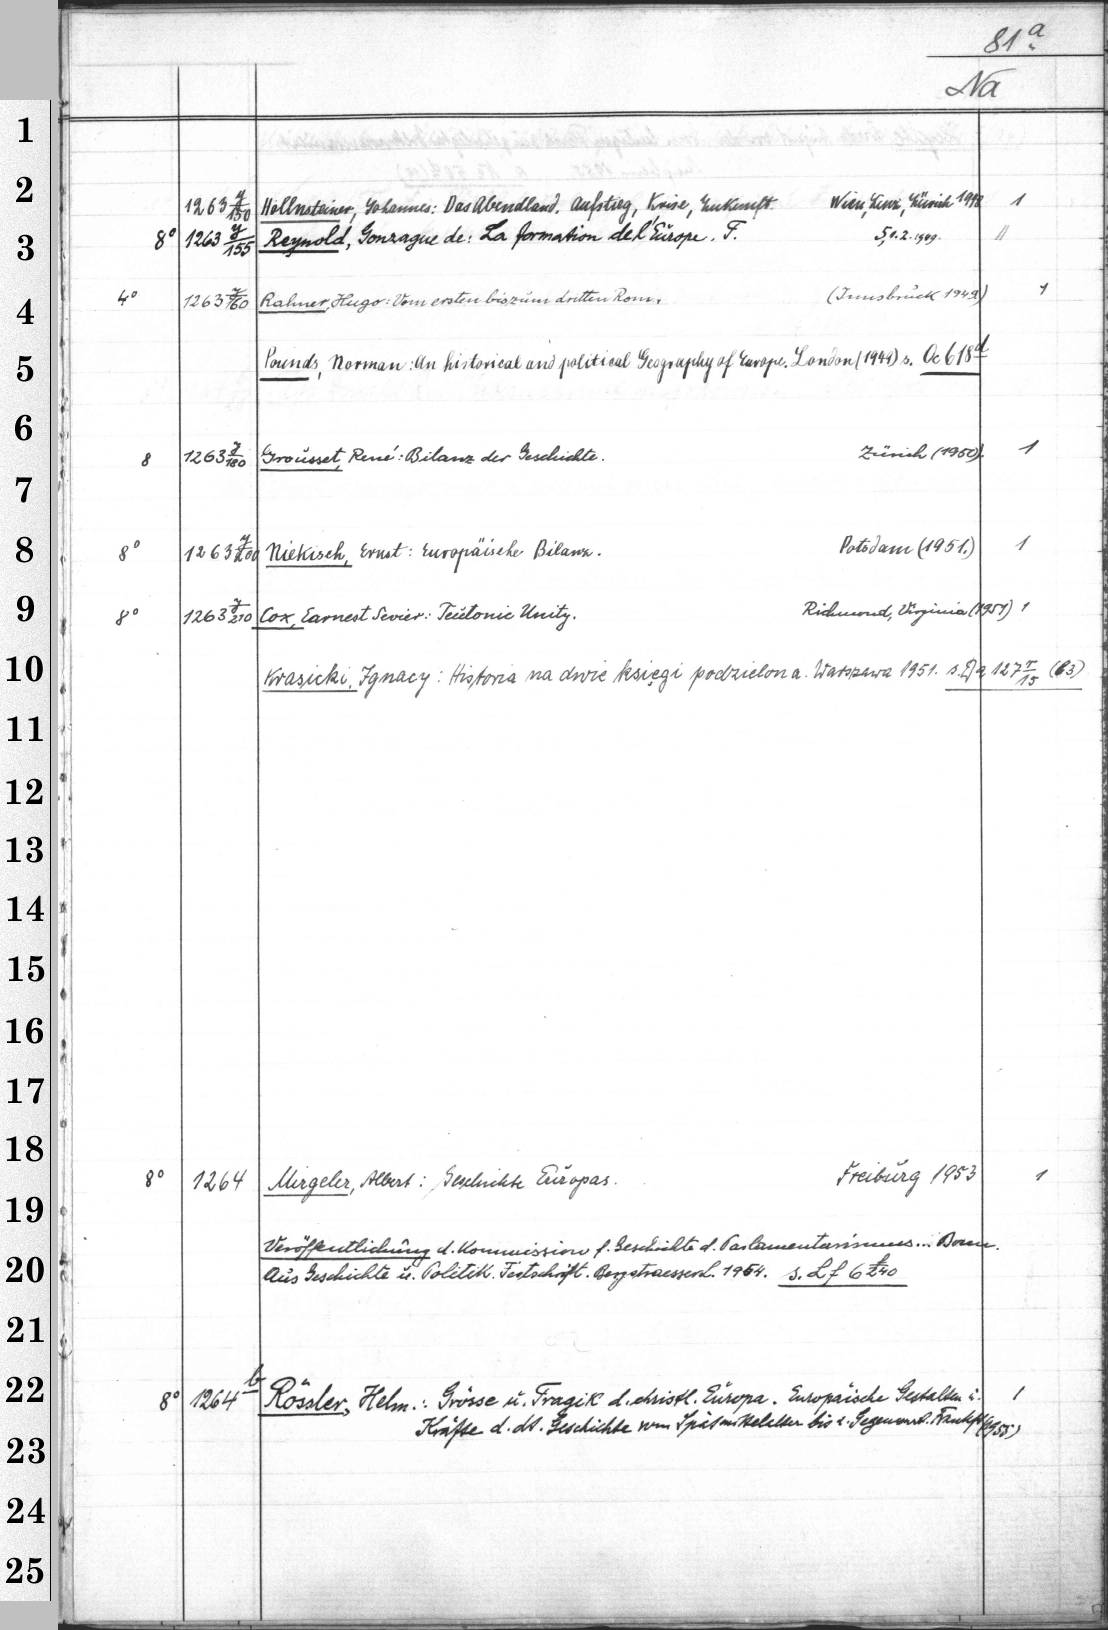 81a
Na
1
2 1263 y/150 Hollnsteiner, Johannes: Das Abendland. Aufstieg, Krise, Zukunft. Wien, Linz, Zürich 1 
3 8° 1263 y/155 Reynold, Gonzague de: La formation de l'Europe. T. 5, 1. 2. 1949. 
4 4° 1263 y/160 Rahner, Hugo: Vom ersten bis zum dritten Rom. (Innsbruck 1949) 1
5 Pounds, Norman: An historical and political Geography of Europe. London (1949) s. Oc 618d
6
8 1263 y/180 Grousset, René: Bilanz der Geschichte. Zürich (1950). 1
7
8 8° 1263 y/200 Niekisch, Ernst: Europäische Bilanz. Potsdam (1951.) 1
9 8° 1263 y/210 Cox, Earnest Sevier: Teutonic Unity. Richmond, Virginia (1951) 1
10 Krasicki, Ignacy: Historia na dwie księgi podzielona. Warszawa 1951. s. 127 /15 (63)
11
12
13
14
15
16
17
18
8° 1264 Mirgeler, Albert: Geschichte Europas. Freiburg 1953 1
19
Veröffentlichung d. Kommission f. Geschichte d. Parlamentarismus... Bonn.
20 Aus Geschichte u. Politik. Festschrift. Bergstraesser. 1954. s. Lf 6 /240
21
22 8° 1264b Rössler, Helm.: Grösse u. Tragik d. christl. Europa. Europäische Gestalten u. 1
Kräfte d. dt. Geschichte vom Spätmittelalter bis z. Gegenwart. Frankft (1955)
23
24
25